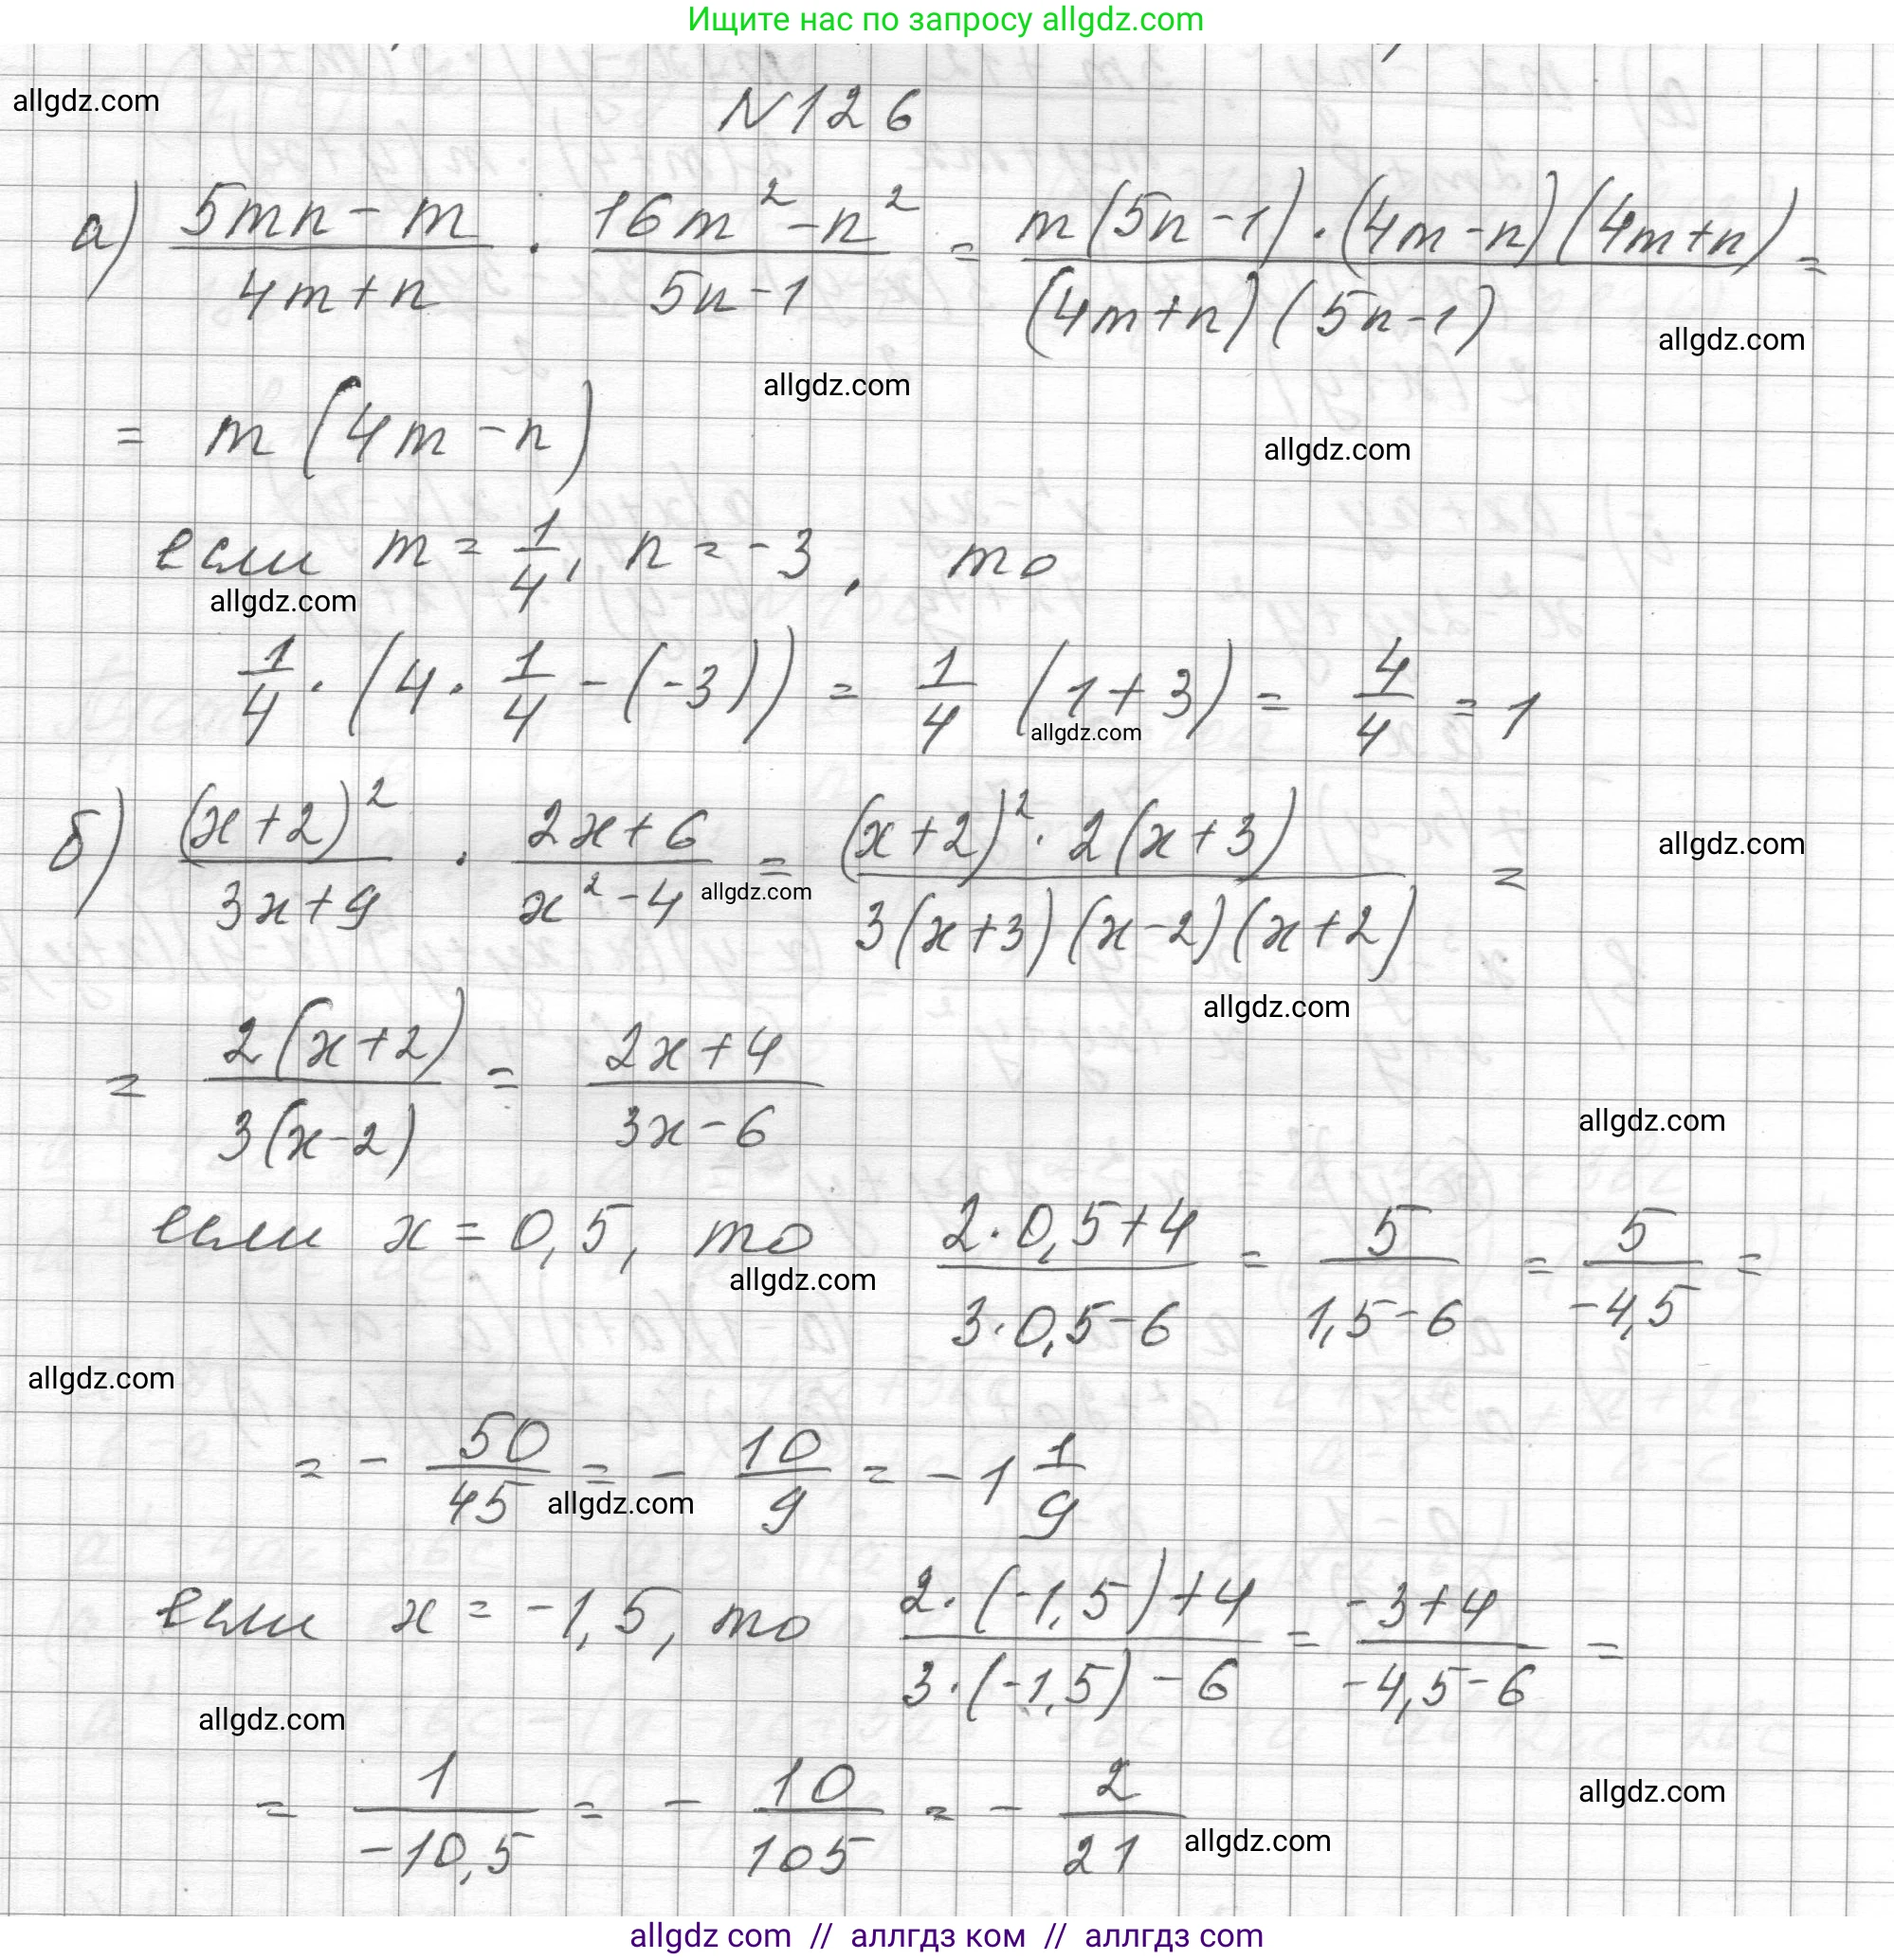 Ищите нас по запросу allgdz.com
allgdz.com
N126
а) (5mn - m)/(4m + n) · (16m² - n²)/(5n - 1) = (m(5n - 1) · (4m - n)(4m + n))/((4m + n)(5n - 1)) =
allgdz.com
allgdz.com
= m(4m - n)
allgdz.com
если m = 1/4, n = -3, то
allgdz.com
1/4 · (4 · 1/4 - (-3)) = 1/4 (1 + 3) = 4/4 = 1
allgdz.com
б) (x + 2)²/(3x + 9) · (2x + 6)/(x² - 4) = ((x + 2)² · 2(x + 3))/(3(x + 3)(x - 2)(x + 2)) =
allgdz.com
allgdz.com
allgdz.com
= 2(x + 2)/3(x - 2) = (2x + 4)/(3x - 6)
allgdz.com
если x = 0,5, то (2 · 0,5 + 4)/(3 · 0,5 - 6) = 5/(1,5 - 6) = 5/(-4,5) =
allgdz.com
allgdz.com
= - 50/45 = - 10/9 = - 1 1/9
allgdz.com
если x = -1,5, то (2 · (-1,5) + 4)/(3 · (-1,5) - 6) = (-3 + 4)/(-4,5 - 6) =
allgdz.com
= 1/(-10,5) = - 10/105 = - 2/21
allgdz.com
allgdz.com
allgdz com // аллгдз ком // аллгдз com